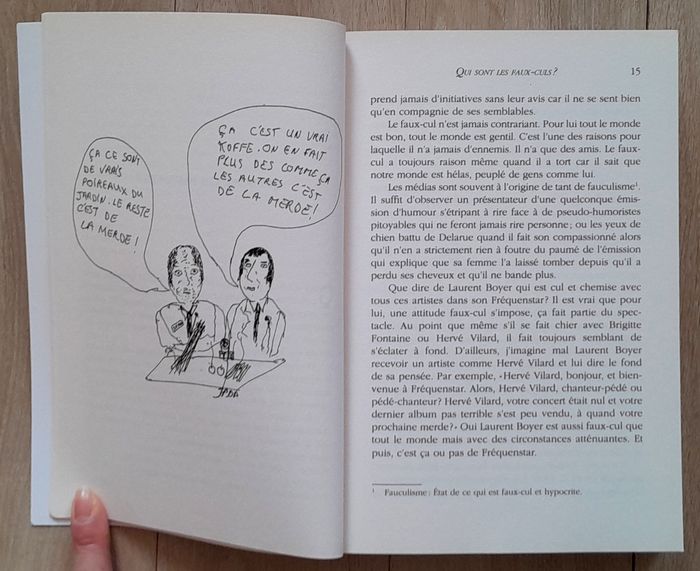 ÇA CE SONT
DE VRAIS
POIREAUX DU
JARDIN. LE RESTE
C'EST DE
LA MERDE!
ÇA C'EST UN VRAI
KOFFE. ON EN FAIT
PLUS DES COMME ÇA
LES AUTRES C'EST
DE LA MERDE!
QUI SONT LES FAUX-CULS? 15
prend jamais d'initiatives sans leur avis car il ne se sent bien
qu'en compagnie de ses semblables.
Le faux-cul n'est jamais contrariant. Pour lui tout le monde
est bon, tout le monde est gentil. C'est l'une des raisons pour
laquelle il n'a jamais d'ennemis. Il n'a que des amis. Le faux-
cul a toujours raison même quand il a tort car il sait que
notre monde est hélas, peuplé de gens comme lui.
Les médias sont souvent à l'origine de tant de fauculisme¹.
Il suffit d'observer un présentateur d'une quelconque émis-
sion d'humour s'étripant à rire face à de pseudo-humoristes
pitoyables qui ne feront jamais rire personne; ou les yeux de
chien battu de Delarue quand il fait son compassionné alors
qu'il n'en a strictement rien à foutre du paumé de l'émission
qui explique que sa femme l'a laissé tomber depuis qu'il a
perdu ses cheveux et qu'il ne bande plus.
Que dire de Laurent Boyer qui est cul et chemise avec
tous ces artistes dans son Fréquenstar? Il est vrai que pour
lui, une attitude faux-cul s'impose, ça fait partie du spec-
tacle. Au point que même s'il se fait chier avec Brigitte
Fontaine ou Hervé Vilard, il fait toujours semblant de
s'éclater à fond. D'ailleurs, j'imagine mal Laurent Boyer
recevoir un artiste comme Hervé Vilard et lui dire le fond
de sa pensée. Par exemple, «Hervé Vilard, bonjour, et bien-
venue à Fréquenstar. Alors, Hervé Vilard, chanteur-pédé ou
pédé-chanteur? Hervé Vilard, votre concert était nul et votre
dernier album pas terrible s'est peu vendu, à quand votre
prochaine merde?» Oui Laurent Boyer est aussi faux-cul que
tout le monde mais avec des circonstances atténuantes. Et
puis, c'est ça ou pas de Fréquenstar.
¹ Fauculisme: État de ce qui est faux-cul et hypocrite.